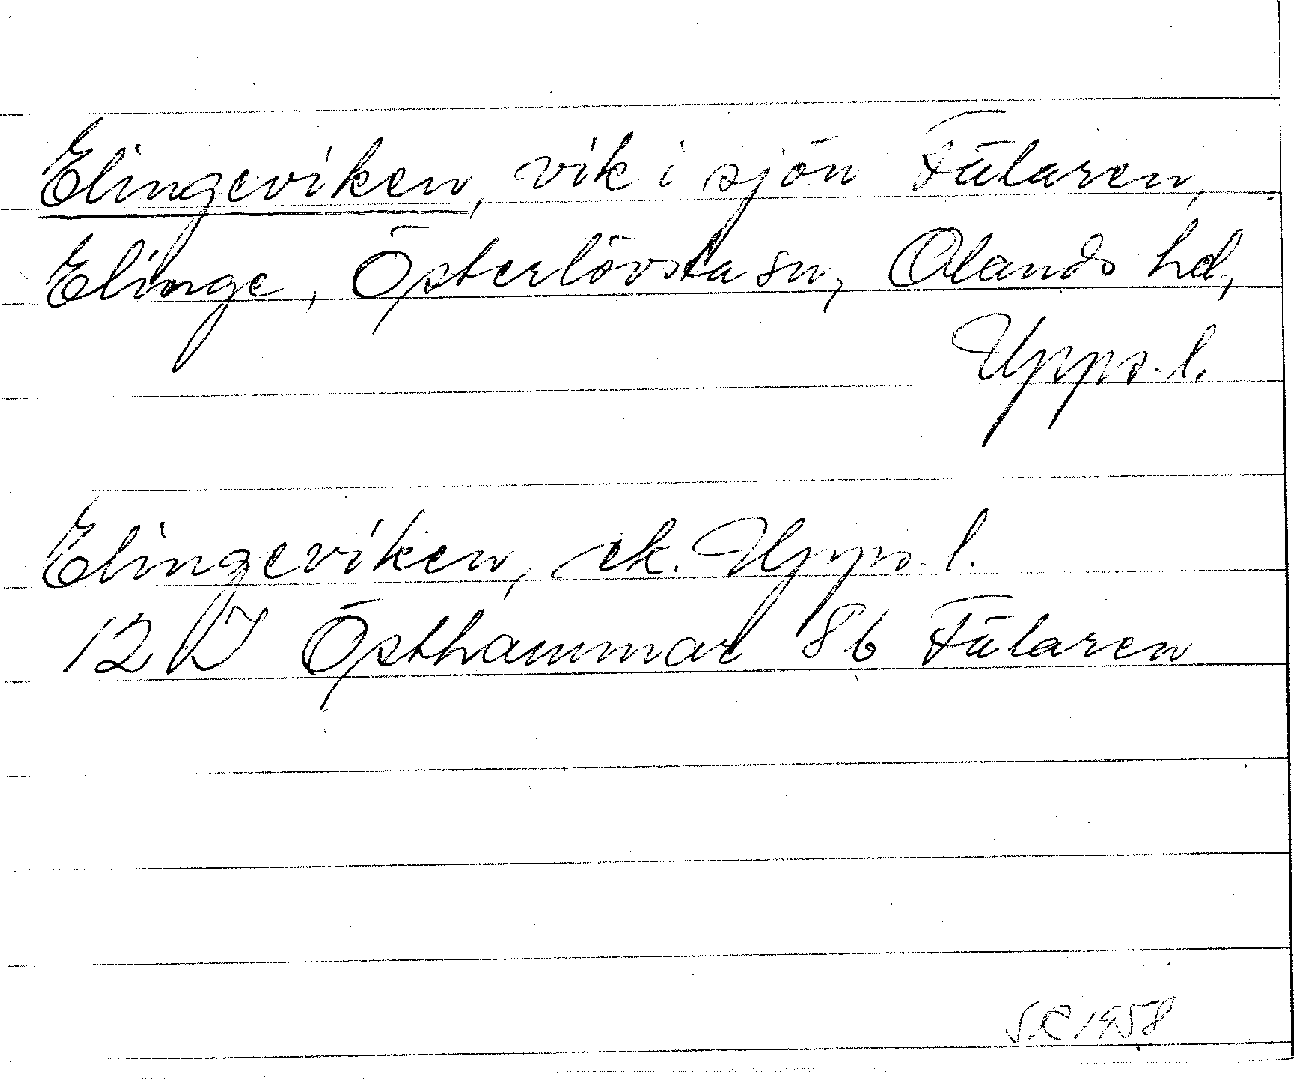 Elingeviken, vik i sjön Fälaren,
Elinge, Österlövsta sn, Olands hd,
Upps. l.
Elingeviken, ek. Upps. l.
12 I Östhammar 8b Fälaren
1958